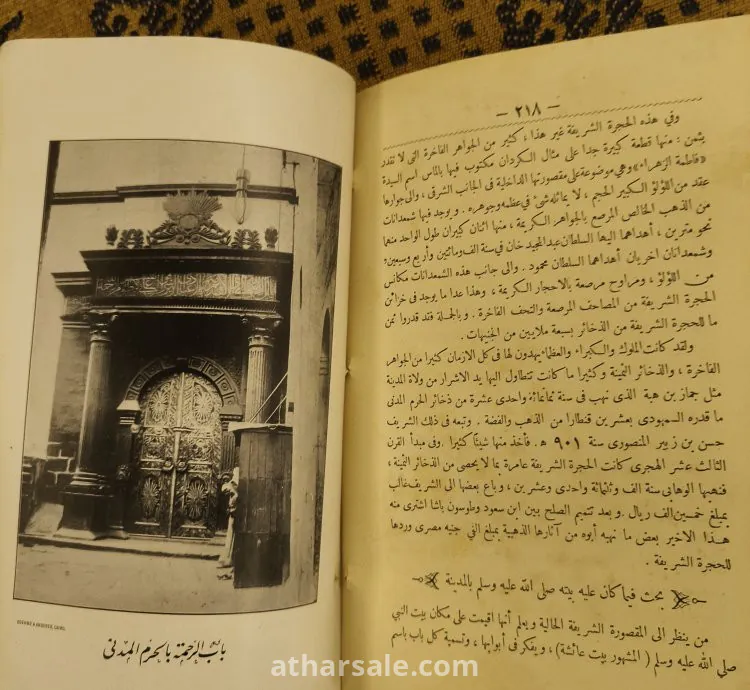 — ٢١٨ —
وفي هذه الحجرة الشريفة غير هذا ، كثير من الجواهر الفاخرة التى لا تقدر
بثمن : منها قطعة كبيرة جدا على مثال الكردان مكتوب فيها بالماس اسم السيدة
«فاطمة الزهراء» وهي موضوعة على مقصورتها الداخلية فى الجانب الشرقى ، والى جوارها
عقد من اللؤلؤ الكبير الحجم ، لا يماثله شئ في عظمه وجوهره . ويوجد فيها شمعدانات
من الذهب الخالص المرصع بالجواهر الكريمة ، منها اثنان كبيران طول الواحد منهما
نحو مترين ، أهداهما اليها السلطان عبد المجيد خان في سنة الف ومائتين وأربع وسبعين ،
وشمعدانان اخريان أهداهما السلطان محمود . والى جانب هذه الشمعدانات مكانس
من اللؤلؤ ، ومراوح مرصعة بالاحجار الكريمة ، وهذا عدا ما يوجد فى خزائن
الحجرة الشريفة من المصاحف المرصعة والتحف الفاخرة . وبالجملة فقد قدروا ثمن
ما للحجرة الشريفة من الذخائر بسبعة ملايين من الجنيهات .
ولقد كانت الملوك والكبراء والعظماء يهدون لها فى كل الازمان كثيرا من الجواهر
الفاخرة ، والذخائر الثمينة وكثيرا ما كانت تتطاول اليها يد الاشرار من ولاة المدينة
مثل جماز بن هبة الذى نهب فى سنة ثمانمائة واحدى عشرة من ذخائر الحرم المدنى
ما قدره السمهودى بعشرين قنطارا من الذهب والفضة . وتبعه فى ذلك الشريف
حسن بن زبير المنصورى سنة ٩٠١ ه‍ . فأخذ منها شيئا كثيرا . وفى مبدأ القرن
الثالث عشر الهجرى كانت الحجرة الشريفة عامرة بما لا يحصى من الذخائر الثمينة ،
فنهبها الوهابى سنة الف وثلثمائة واحدى وعشرين ، وباع بعضها الى الشريف غالب
بمبلغ خمسين الف ريال . وبعد تتميم الصلح بين ابن سعود وطوسون باشا اشترى منه
هذا الاخير بعض ما نهبه أبوه من آثارها الذهبية بمبلغ الفي جنيه مصرى وردها
للحجرة الشريفة .
بحث فيما كان عليه بيته صلى الله عليه وسلم بالمدينة
من ينظر الى المقصورة الشريفة الحالية ويعلم أنها اقيمت على مكان بيت النبي
صلى الله عليه وسلم ( المشهور ببيت عائشة ) ، ويفكر فى أبوابها ، وتسمية كل باب باسم
باب الرحمة بالحرم المدنى
atharsale.com